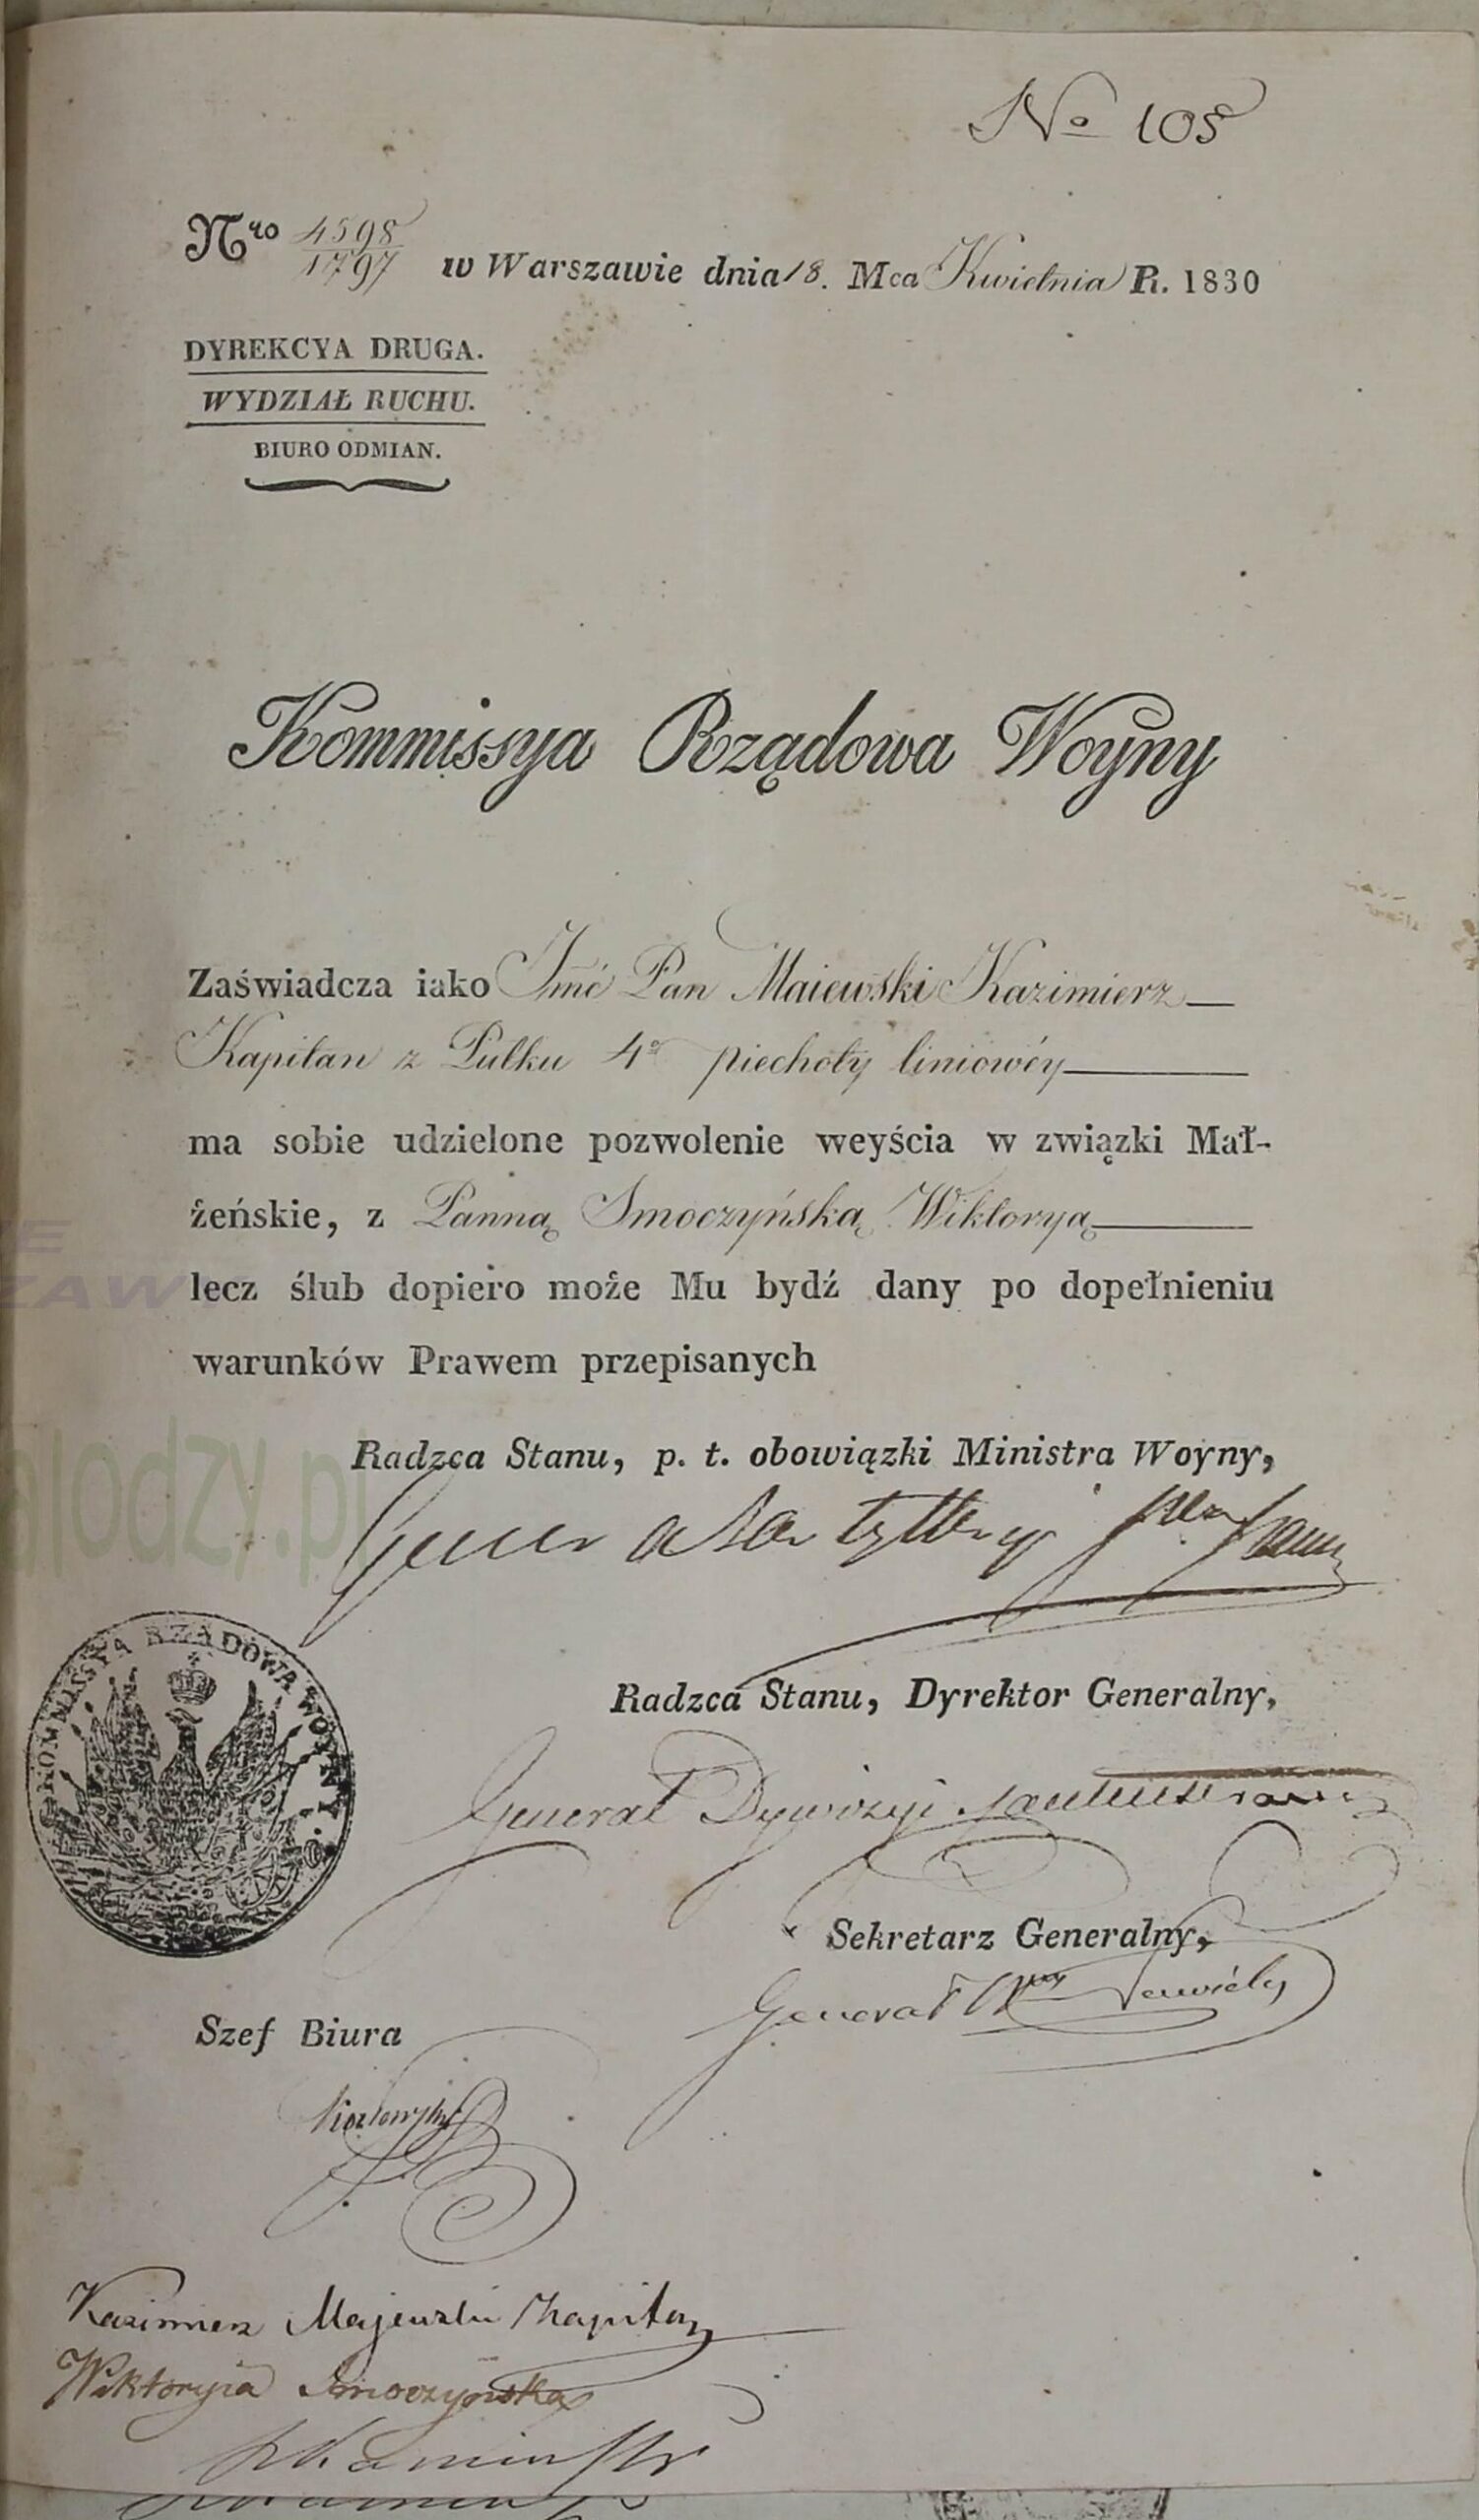 No 105
Nro 4598/1797 w Warszawie dnia 18. Mca Kwietnia R. 1830
DYREKCYA DRUGA.
WYDZIAŁ RUCHU.
BIURO ODMIAN.
Kommissya Rządowa Woyny
Zaświadcza iako Jmć Pan Maiewski Kazimierz
Kapitan z Pułku 4o piechoty liniowéy
ma sobie udzielone pozwolenie weyścia w związki Mał-
żeńskie, z Panną Smoczyńską Wiktoryą
lecz ślub dopiero może Mu bydź dany po dopełnieniu
warunków Prawem przepisanych
Radzca Stanu, p. t. obowiązki Ministra Woyny,
Generał Artylleryi
KOMMISSYA RZĄDOWA WOYNY
Radzca Stanu, Dyrektor Generalny,
Generał Dywizyi
Sekretarz Generalny,
Generał
Szef Biura
Kazimierz Majewski Kapitan
Wiktoryia Smoczyńska
alodzy.pl
ZAW